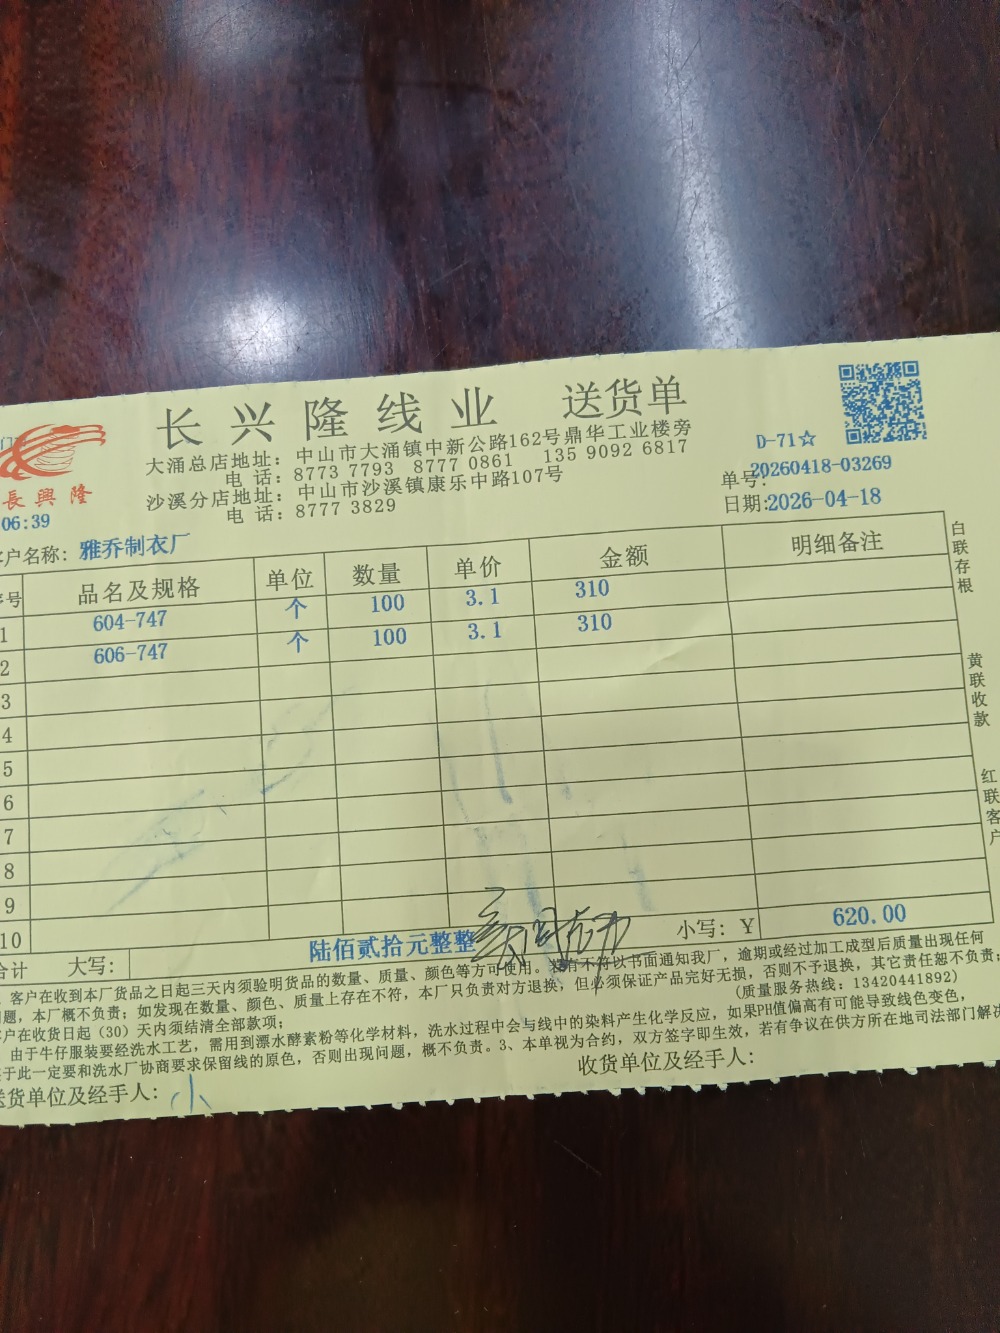 长兴隆线业 送货单
大涌总店地址：中山市大涌镇中新公路162号鼎华工业楼旁
电 话：8773 7793 8777 0861 135 9092 6817
沙溪分店地址：中山市沙溪镇康乐中路107号
电 话：8777 3829
長興隆
06:39
D-71☆
单号：20260418-03269
日期：2026-04-18
客户名称：雅乔制衣厂
序号 品名及规格 单位 数量 单价 金额 明细备注
1 604-747 个 100 3.1 310
2 606-747 个 100 3.1 310
3
4
5
6
7
8
9
10
合计 大写： 陆佰贰拾元整整 小写：¥ 620.00
白联存根
黄联收款
红联客户
客户在收到本厂货品之日起三天内须验明货品的数量、质量、颜色等方可使用。若有不符以书面通知我厂，逾期或经过加工成型后质量出现任何
问题，本厂概不负责；如发现在数量、颜色、质量上存在不符，本厂只负责对方退换，但必须保证产品完好无损，否则不予退换，其它责任恕不负责；
客户在收货日起（30）天内须结清全部款项；
(质量服务热线：13420441892)
由于牛仔服装要经洗水工艺，需用到漂水酵素粉等化学材料，洗水过程中会与线中的染料产生化学反应，如果PH值偏高有可能导致线色变色，
鉴于此一定要和洗水厂协商要求保留线的原色，否则出现问题，概不负责。3、本单视为合约，双方签字即生效，若有争议在供方所在地司法部门解决
送货单位及经手人： 小
收货单位及经手人：